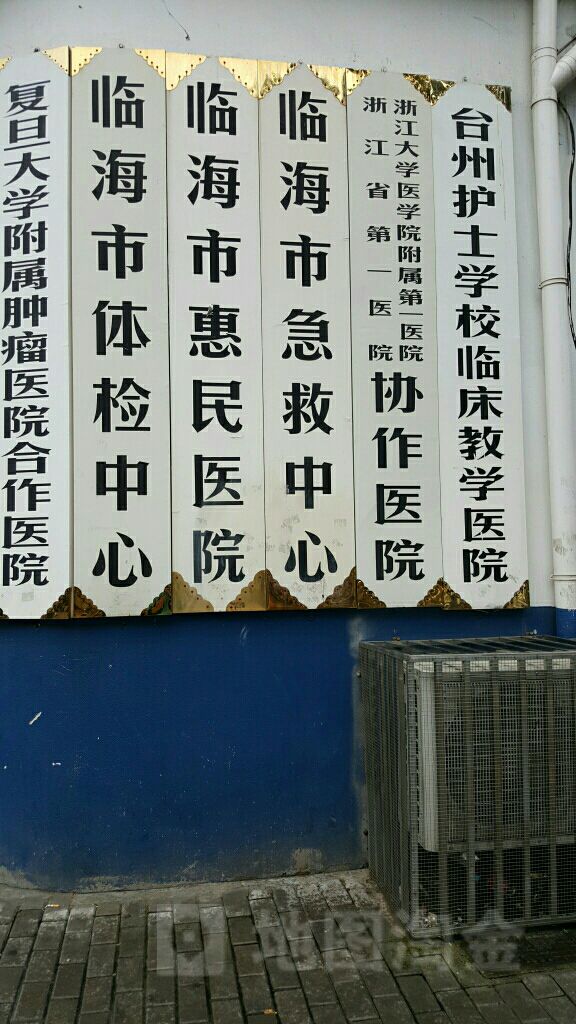 复旦大学附属肿瘤医院合作医院
临海市体检中心
临海市惠民医院
临海市急救中心
浙江大学医学院附属第一医院
浙江省第一医院
协作医院
台州护士学校临床教学医院
地图淘金